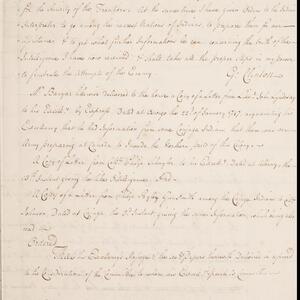 for the Security of the Frontiers. At the same time I have given Orders to the Indian
Interpreter to go among the nearest Nations of Indians, to prepare them for an
& to get what further Information he can concerning the truth of the
Intelligence I have now received & I shall take all the proper steps in my power
to frustrate the Attempts of the Enemy.
G. Clinton
Mr. delivered to the house a Copy of a Letter from John Lindesay
to his Excelly. by Express Dated at Oswego the 22d of January 1747 acquainting his
Excellency that he had Information from some Cayuga Indian that there was an
Army preparing at Canada to invade the Northern parts of this Colony
A Copy of a Letter from Colo. Philip Schuyler to his Excelly. Dated at Albany the
Instant giving the like Intelligence. And
A Copy of a Letter from the Cayuga Indians to Colo.
Johnson Dated at Cayuga the Instant giving the same Information
read the
Ordered
That his Excellencys Message & the sd. Papers herewith delivered be referred
to the Consideration of the Committee to whom his Excelly's Speech is Committed